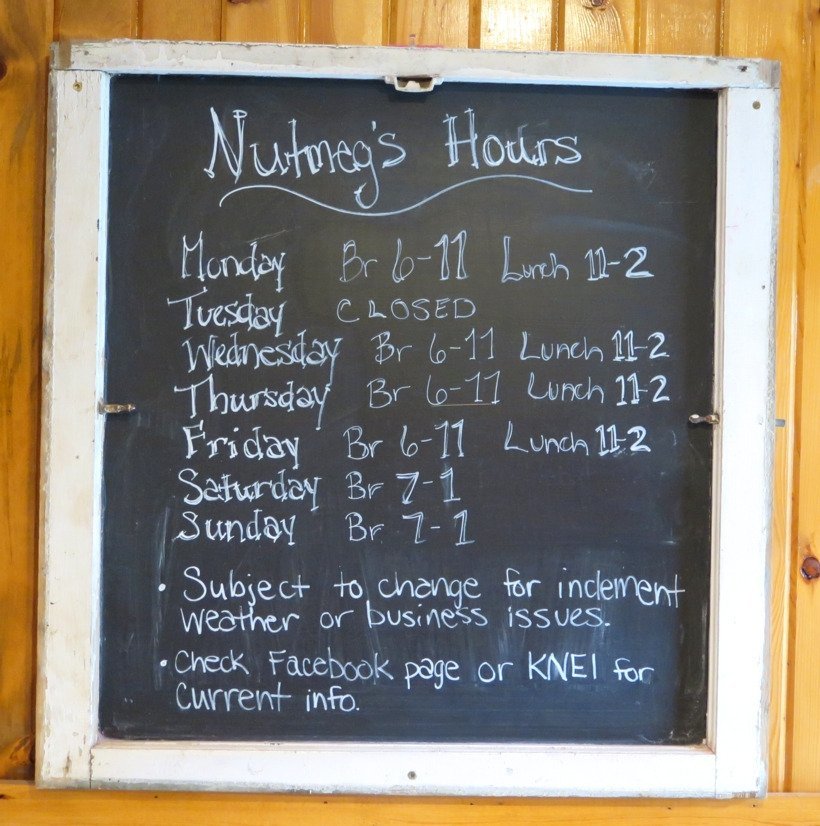 Nutmeg's Hours
Monday Br 6-11 Lunch 11-2
Tuesday CLOSED
Wednesday Br 6-11 Lunch 11-2
Thursday Br 6-11 Lunch 11-2
Friday Br 6-11 Lunch 11-2
Saturday Br 7-1
Sunday Br 7-1
• Subject to change for inclement
weather or business issues.
• Check Facebook page or KNEI for
current info.